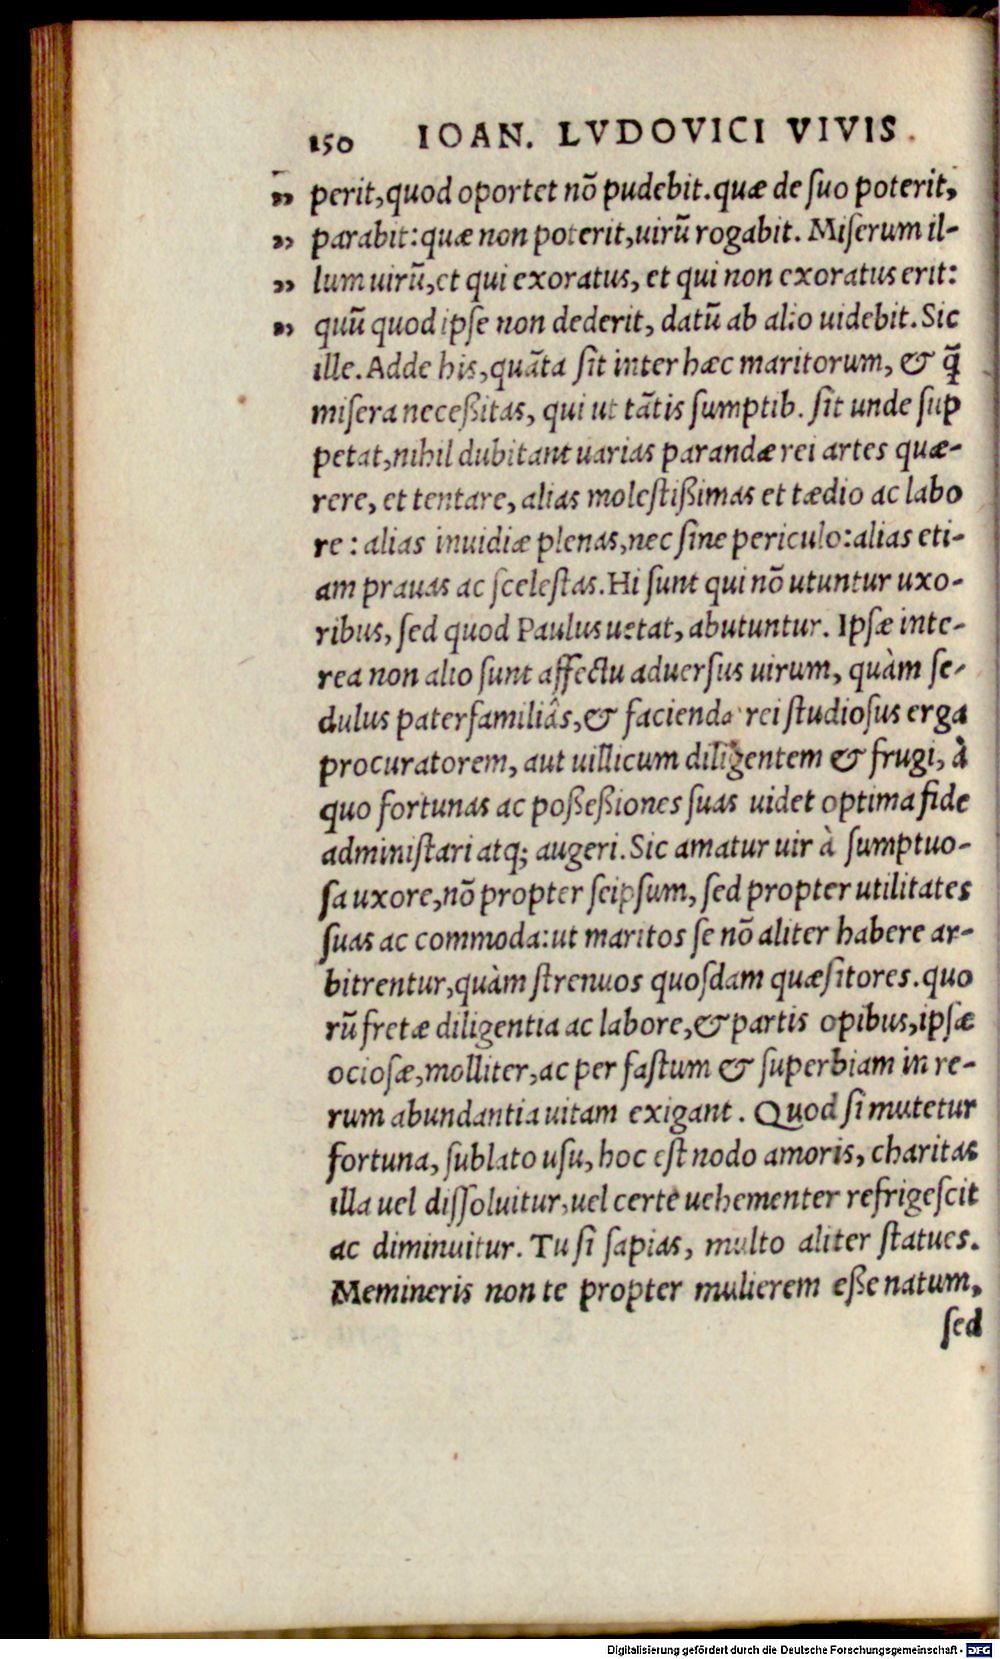 150 IOAN. LVDOVICI VIVIS.
„ perit, quod oportet nõ pudebit. quæ de ſuo poterit,
„ parabit: quæ non poterit, uirũ rogabit. Miſerum il-
„ lum uirũ, et qui exoratus, et qui non exoratus erit:
„ quũ quod ipſe non dederit, datũ ab alio uidebit. Sic
ille. Adde his, quãta ſit inter hæc maritorum, & q̃
miſera neceßitas, qui ut tãtis ſumptib. ſit unde ſup
petat, nihil dubitant uarias parandæ rei artes quæ-
rere, et tentare, alias moleſtißimas et tædio ac labo
re: alias inuidiæ plenas, nec ſine periculo: alias eti-
am prauas ac ſceleſtas. Hi ſunt qui nõ utuntur uxo-
ribus, ſed quod Paulus uetat, abutuntur. Ipſæ inte-
rea non alio ſunt affectu aduerſus uirum, quàm ſe-
dulus paterfamiliâs, & facienda rei ſtudioſus erga
procuratorem, aut uillicum diligentem & frugi, à
quo fortunas ac poßeßiones ſuas uidet optima fide
adminiſtrari atq; augeri. Sic amatur uir à ſumptuo-
ſa uxore, nõ propter ſeipſum, ſed propter utilitates
ſuas ac commoda: ut maritos ſe nõ aliter habere ar-
bitrentur, quàm ſtrenuos quoſdam quæſitores. quo
rũ fretæ diligentia ac labore, & partis opibus, ipſæ
ocioſæ, molliter, ac per faſtum & ſuperbiam in re-
rum abundantia uitam exigant. Quod ſi mutetur
fortuna, ſublato uſu, hoc eſt nodo amoris, charitas
illa uel diſſoluitur, uel certe uehementer refrigeſcit
ac diminuitur. Tu ſi ſapias, multo aliter ſtatues.
Memineris non te propter mulierem eße natum,
ſed
Digitalisierung gefördert durch die Deutsche Forschungsgemeinschaft - DFG